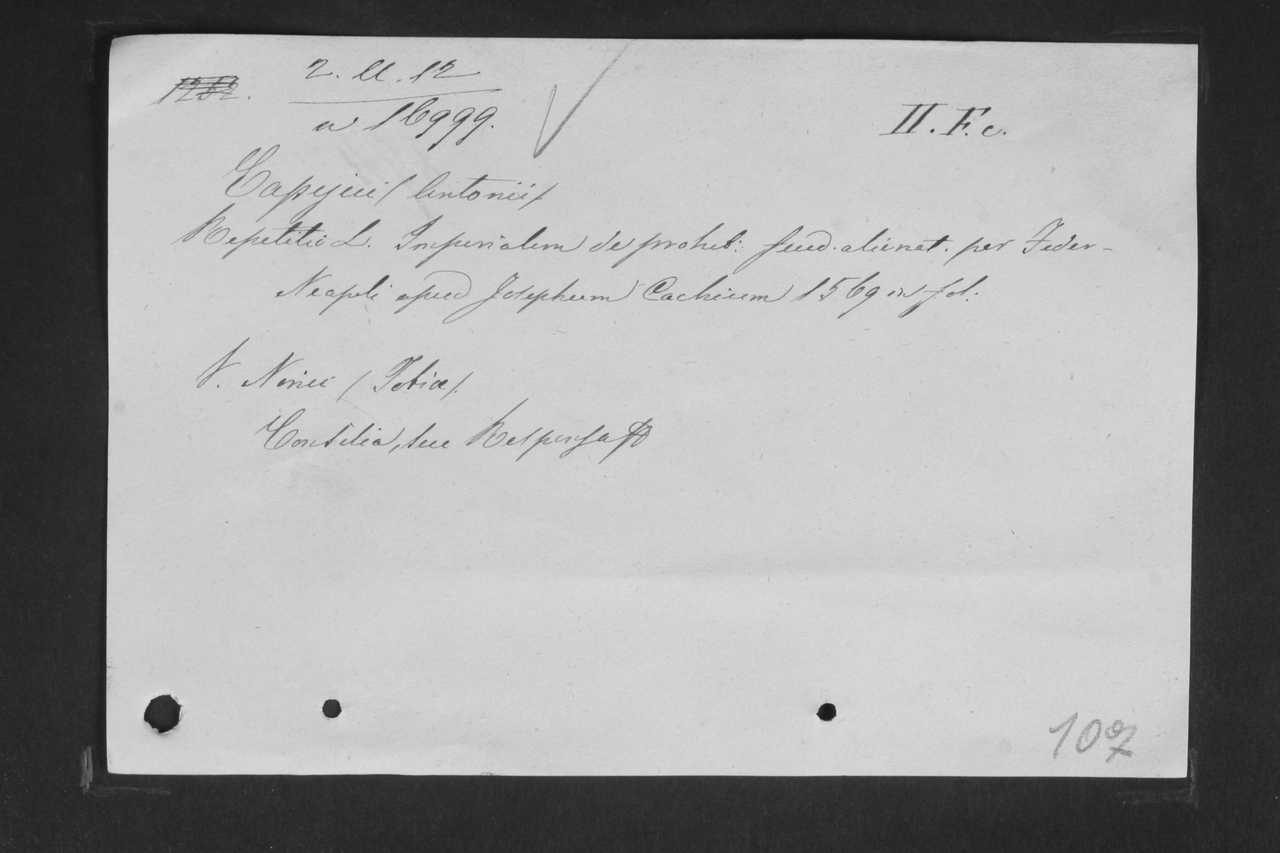 1252.
2. U. 12
a 16999.
II. F. c.
Capycii (Antonii)
Repetitio L. Imperialem de prohib: feud. alienat. per Feder-
Neapoli apud Josephum Cachium 1569 in fol:
V. Nonii (Tobiae).
Consilia, seu Responsa
107